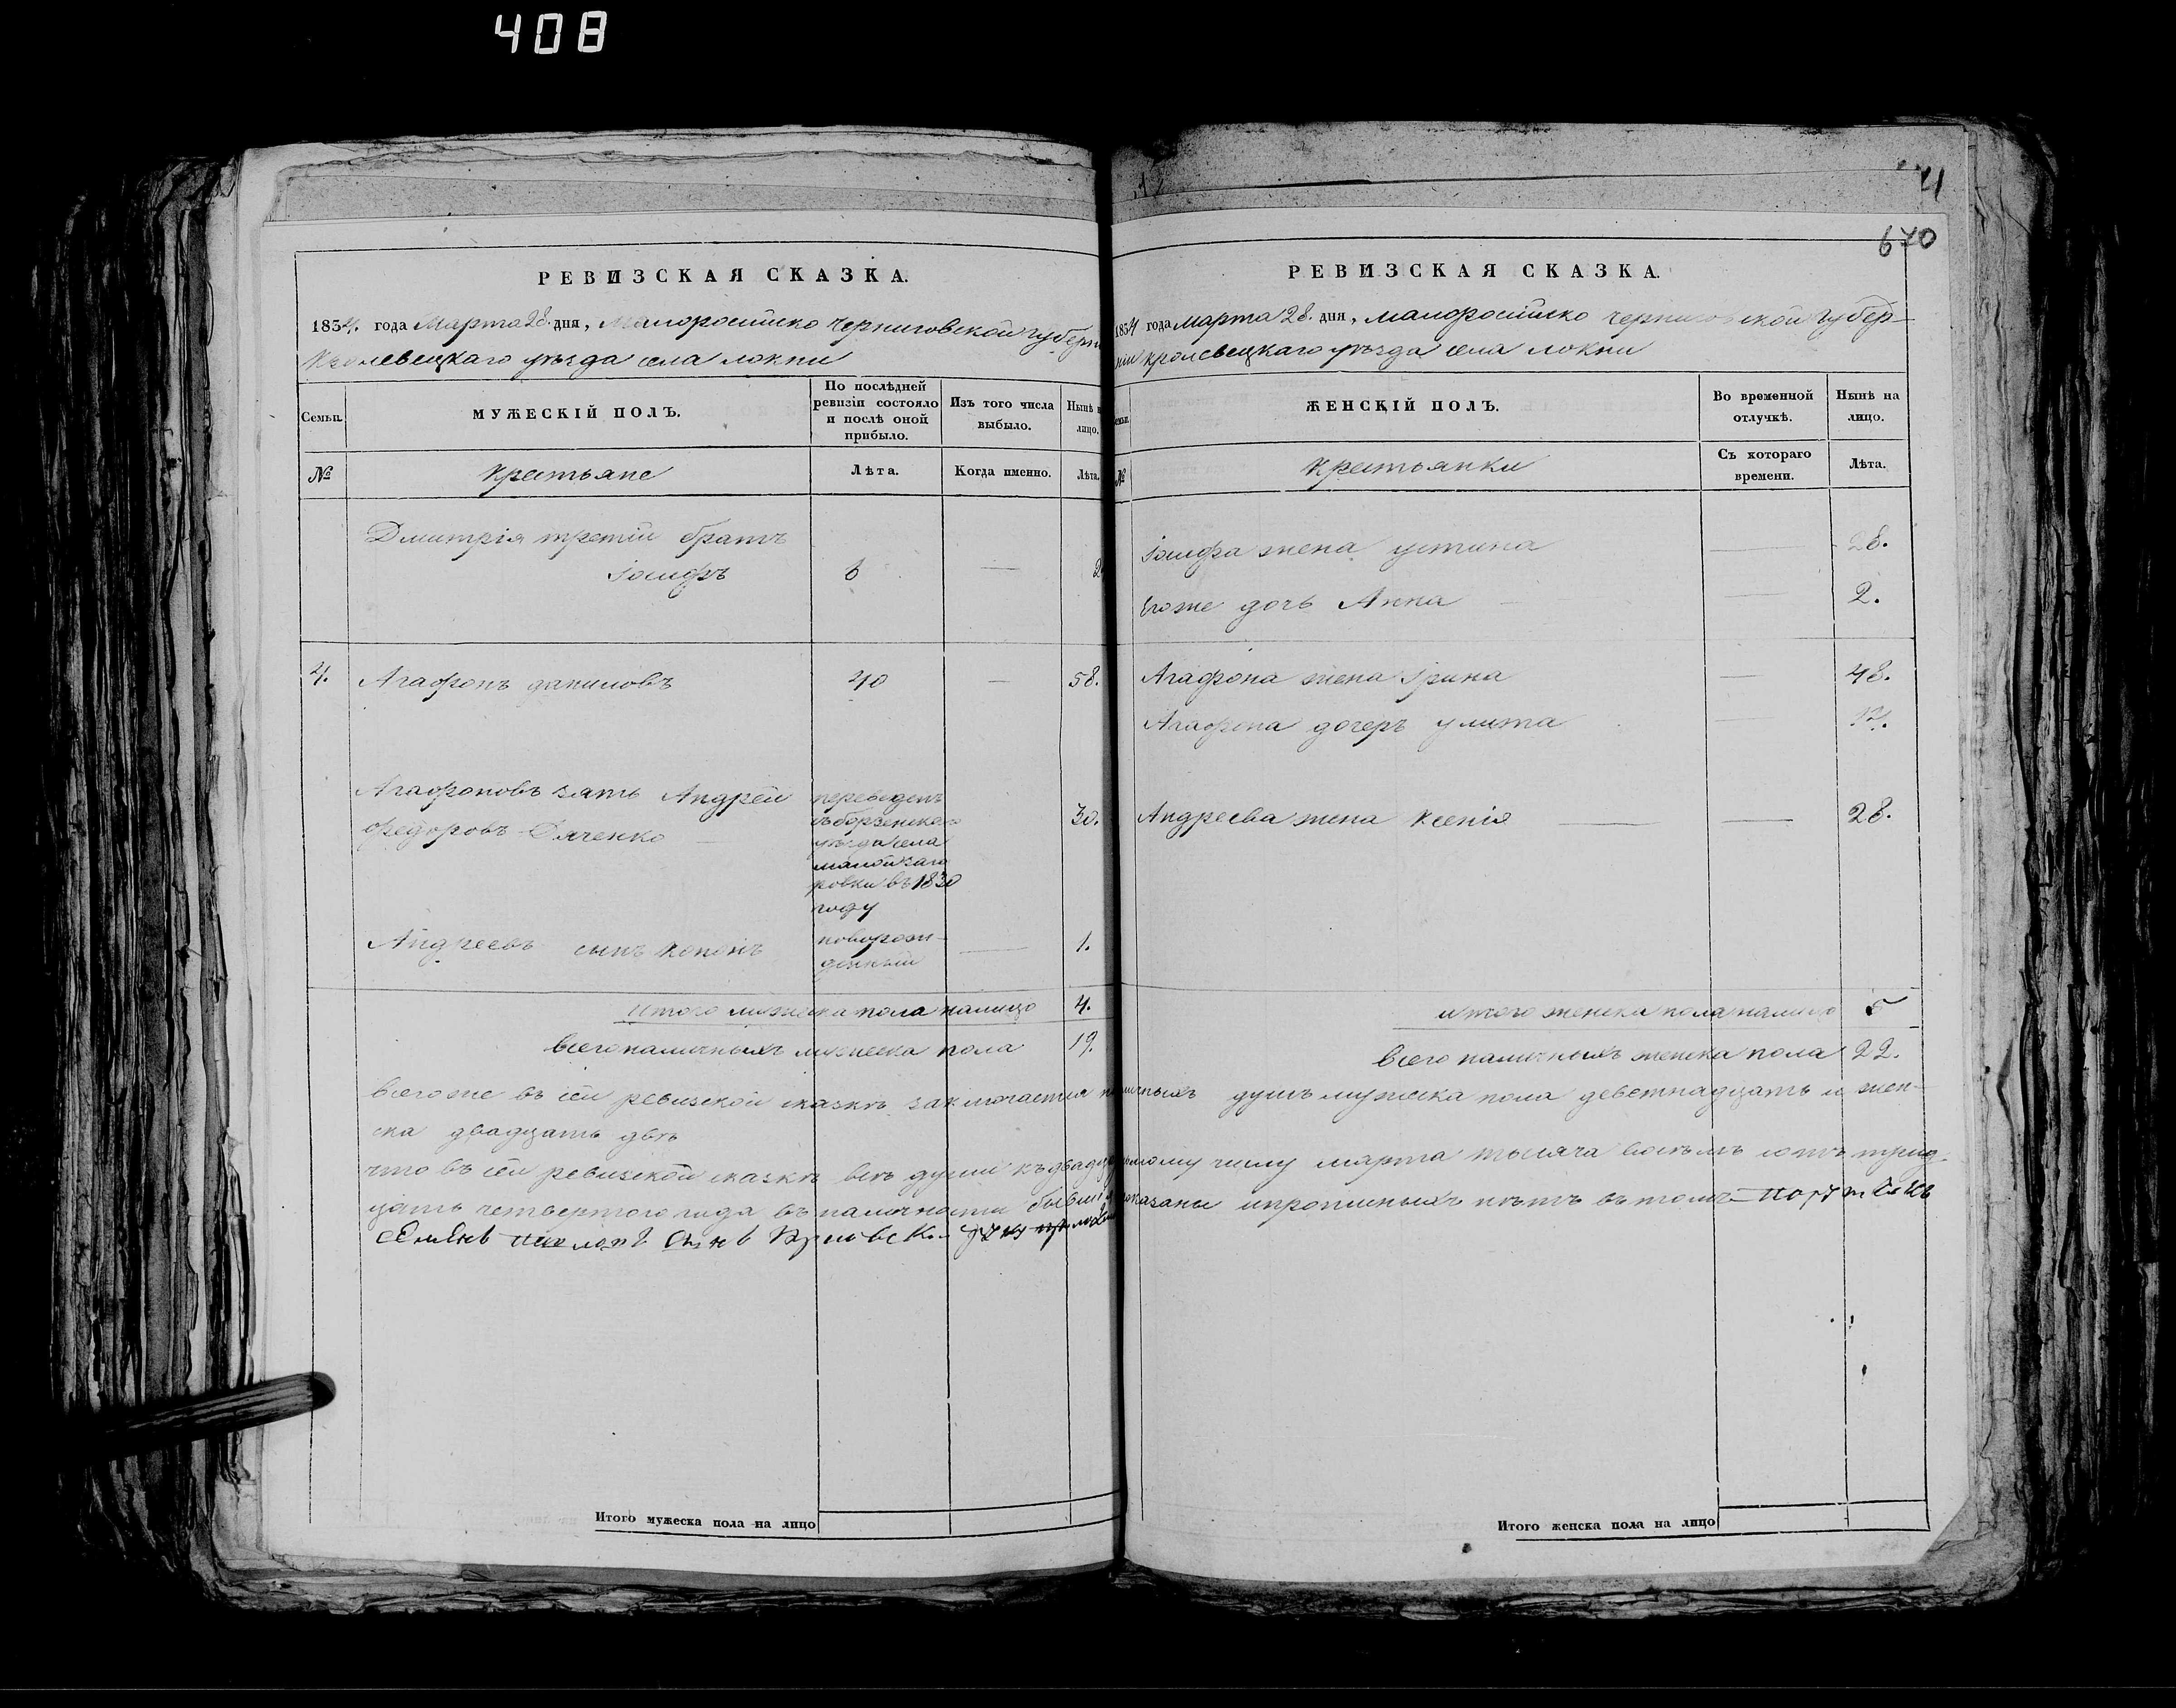 408
РЕВИЗСКАЯ СКАЗКА.
1834. года Марта 28. дня, Малоросійско Черниговской Губерн
Кролевецкаго уѣзда села локни
Семьи.
МУЖЕСКІЙ ПОЛЪ.
По послѣдней ревизіи состояло и послѣ оной прибыло.
Изъ того числа выбыло.
Нынѣ н лицо.
№
Крестьяне
Лѣта.
Когда именно.
Лѣта.
Дмитрія третій братъ
Іосифъ
6
—
2
4.
Агафонъ даниловъ
40
—
58.
Агафоновъ зять Андрей
федоровъ Дяченко
переведенъ
изъ борзенскаго
уѣзда села
малой заго
ровки въ 1830
году
30.
Андреевъ сынъ Кононъ
новорож-
денный
—
1.
Итого мужеска пола налицо 4.
всего наличныхъ мужеска пола 19.
41
670
РЕВИЗСКАЯ СКАЗКА.
1834 года марта 28. дня, малоросійско черниговской Губер-
ніи кролевецкаго уѣзда села локни
ЖЕНСКІЙ ПОЛЪ.
Во временной отлучкѣ.
Нынѣ на лицо.
№
Крестьянки
Съ котораго времени.
Лѣта.
Іосифа жена устина — 28.
Егоже дочь Анна — 2.
Агафона жена Ірина — 48.
Агафона дочеръ улита —
Андреева жена Ксенія — — 28.
итого женска пола налицо 5
всего наличныхъ женска пола 22.
всегоже въ сей ревизской сказкѣ заключается наличныхъ душъ мужеска пола деветнадцать и жен-
ска двадцать двѣ
что въ сей ревизской сказкѣ всѣ души къ марта тысяча восемъ сотъ трид-
цать четвертого года въ наличности бывшія показаны ипрописныхъ нѣтъ въ томъ
Итого мужеска пола на лицо
Итого женска пола на лицо